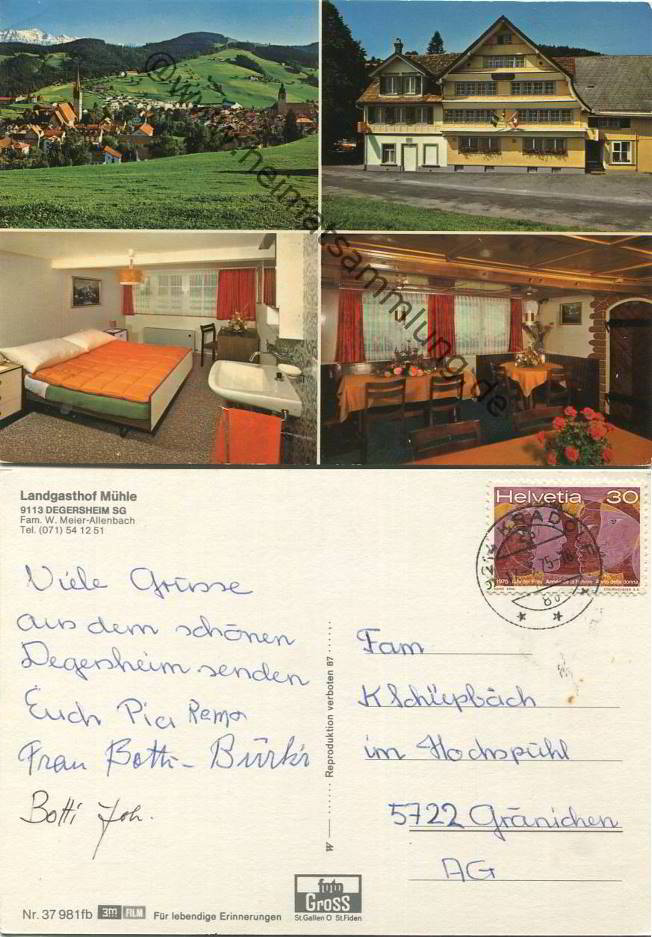 ©www.heimatsammlung.de
Landgasthof Mühle
9113 DEGERSHEIM SG
Fam. W. Meier-Allenbach
Tel. (071) 54 12 51
Viele Grüsse
aus dem schönen
Degersheim senden
Euch Pia Remo
Frau Botti - Bürki
Botti Joh.
Nr. 37 981fb 3m FILM Für lebendige Erinnerungen
W Reproduktion verboten 87
foto
Gross
St.Gallen O St.Fiden
Helvetia 30
1975
Fam
K Schüpbach
im Hochspühl
5722 Gränichen
AG